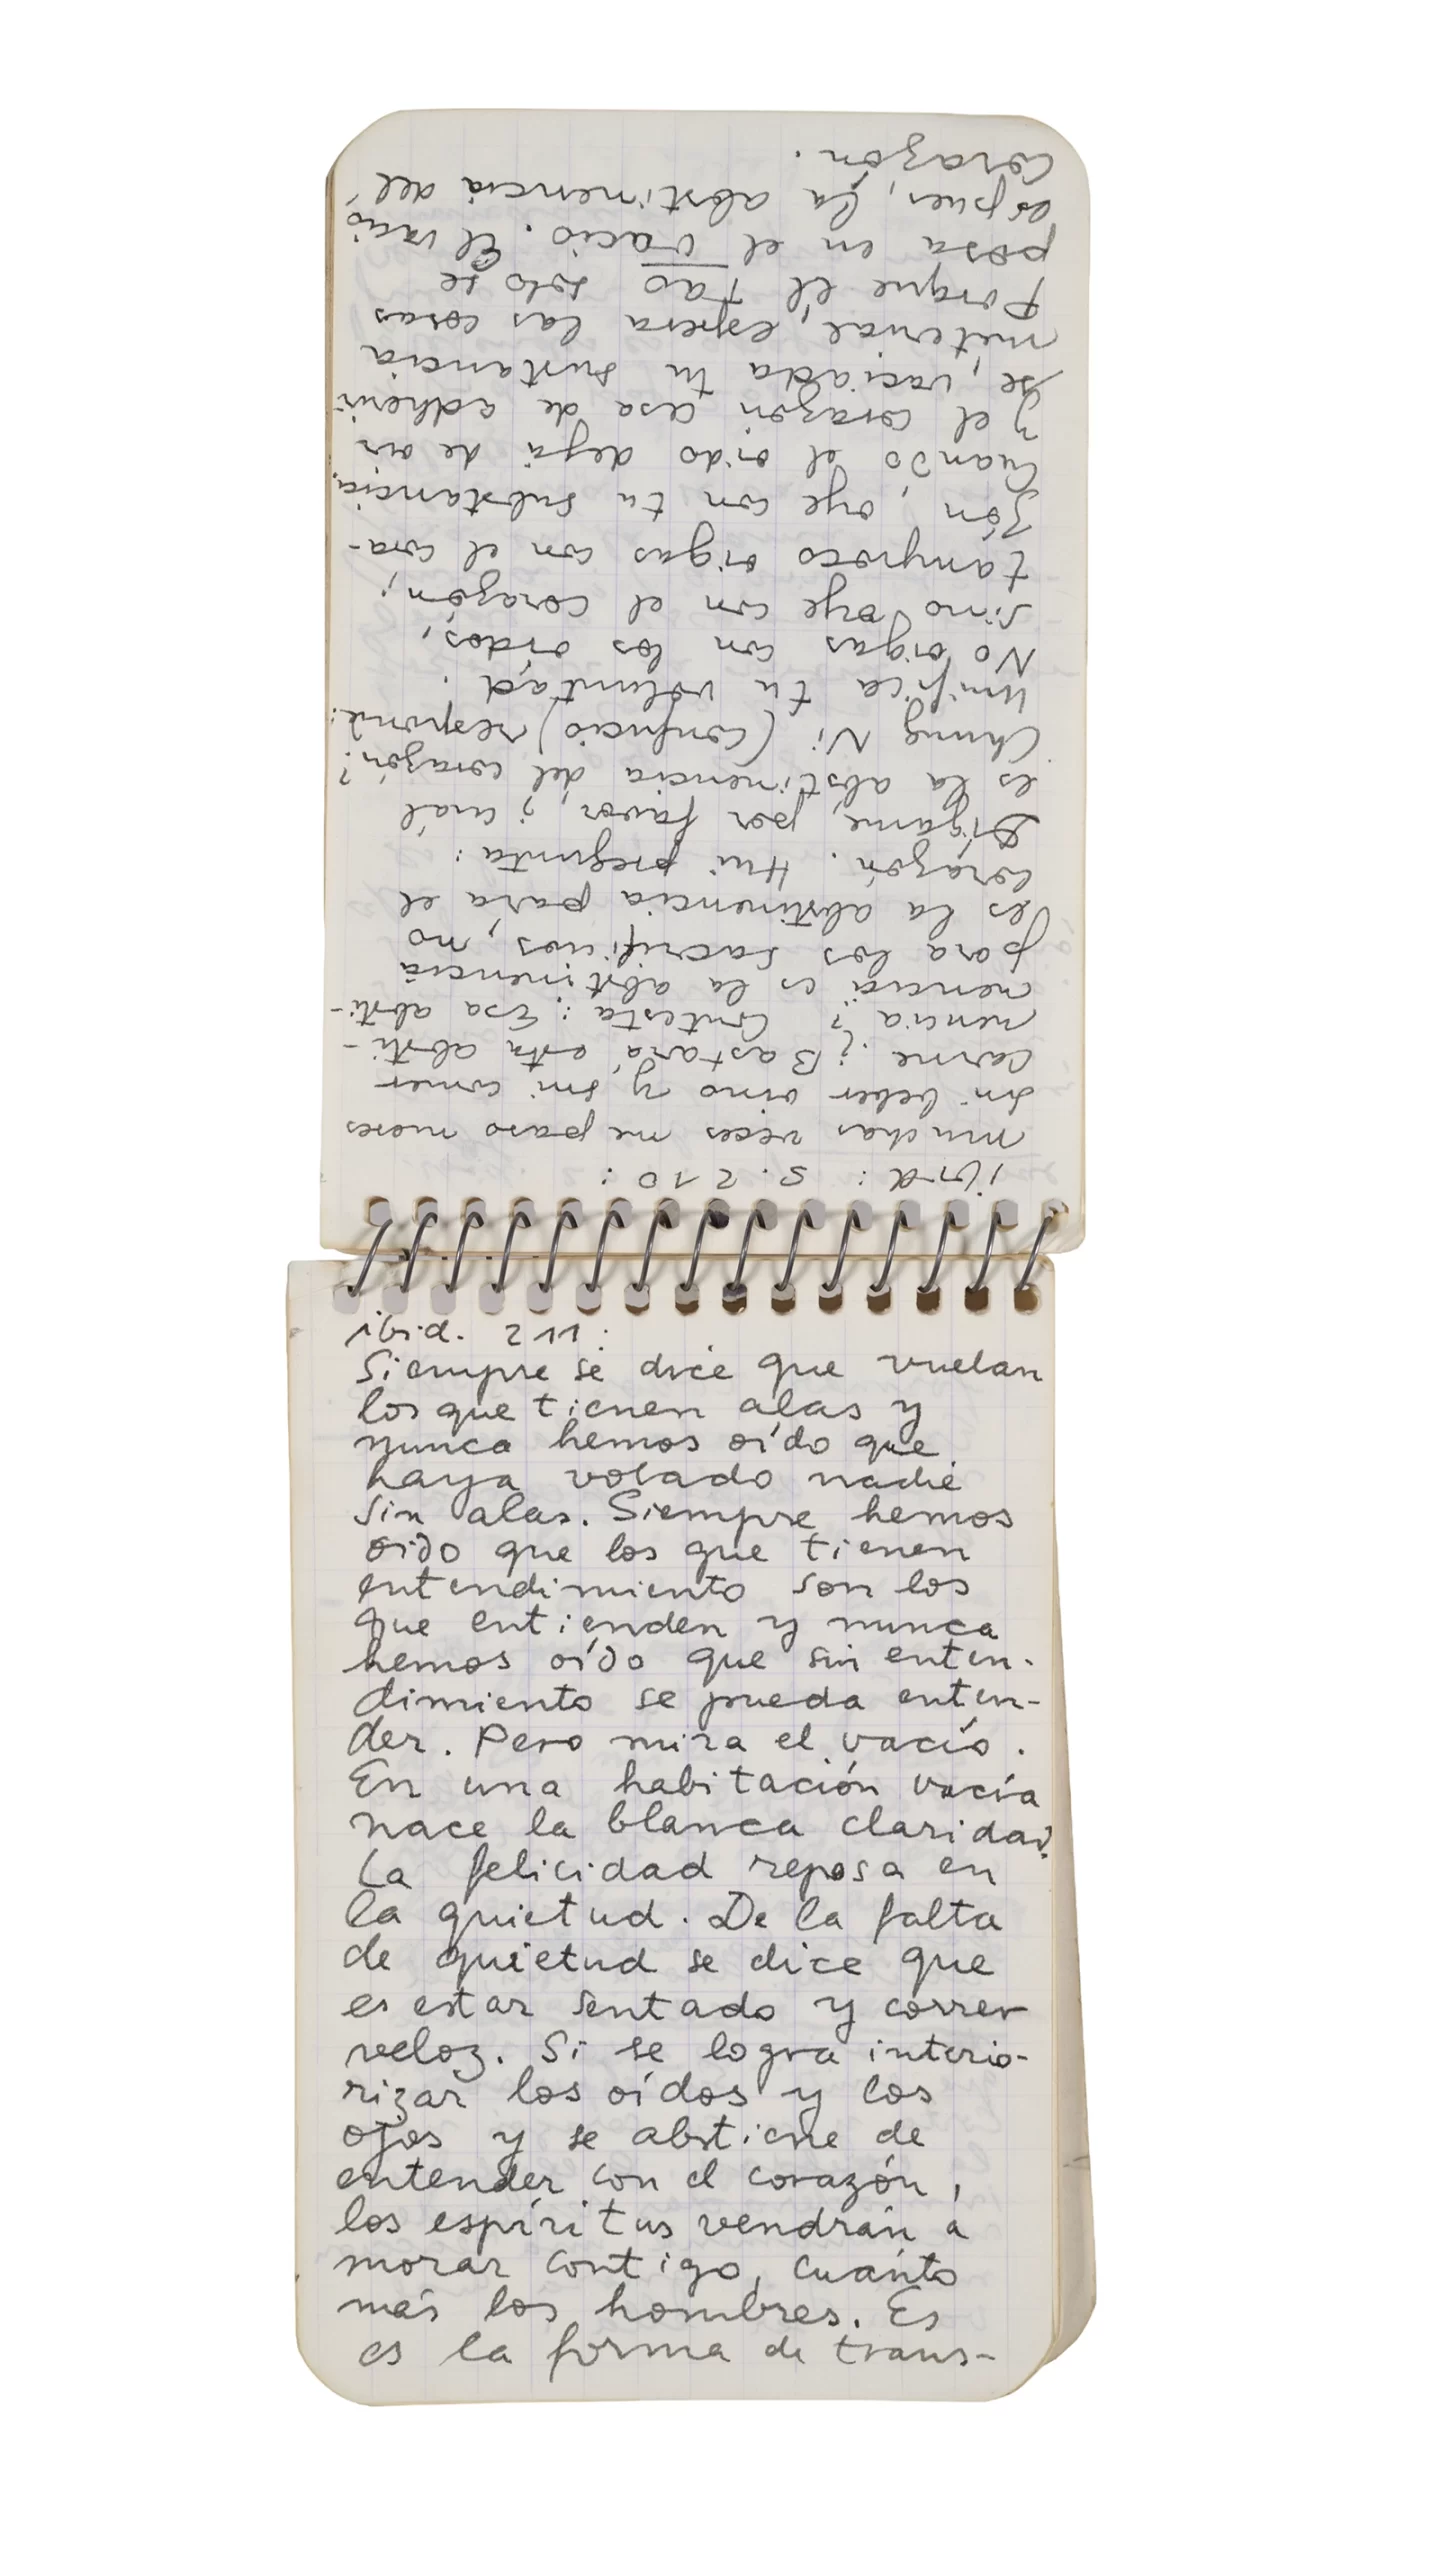 ibid: S. 210:
muchas veces me paso meses
sin beber vino y sin comer
carne ¿Bastará esta absti-
nencia? Contesta: Esa absti-
nencia es la abstinencia
para los sacrificios, no
es la abstinencia para el
corazón. Hui pregunta:
Dígame, por favor, ¿cuál
es la abstinencia del corazón?
Chung Ni (Confucio) responde:
Unifica tu voluntad.
No oigas con los oídos,
sino oye con el corazón;
tampoco oigas con el cora-
zón, oye con tu substancia.
Cuando el oido deja de oir
y el corazón cesa de adherir
se, vaciada tu sustancia
material, espera las cosas
porque el Tao solo se
posa en el vacio. El vacio
es pues, la abstinencia del
corazón.
ibid. 211:
Siempre se dice que vuelan
los que tienen alas y
nunca hemos oído que
haya volado nadie
sin alas. Siempre hemos
oido que los que tienen
entendimiento son los
que entienden y nunca
hemos oído que sin enten-
dimiento se pueda enten-
der. Pero mira el vacío.
En una habitación vacía
nace la blanca claridad.
La felicidad reposa en
la quietud. De la falta
de quietud se dice que
es estar sentado y correr
veloz. Si se logra interio-
rizar los oídos y los
ojos y se abstiene de
entender con el corazón,
los espíritus vendrán a
morar contigo, cuánto
más los hombres. Es
es la forma de trans-